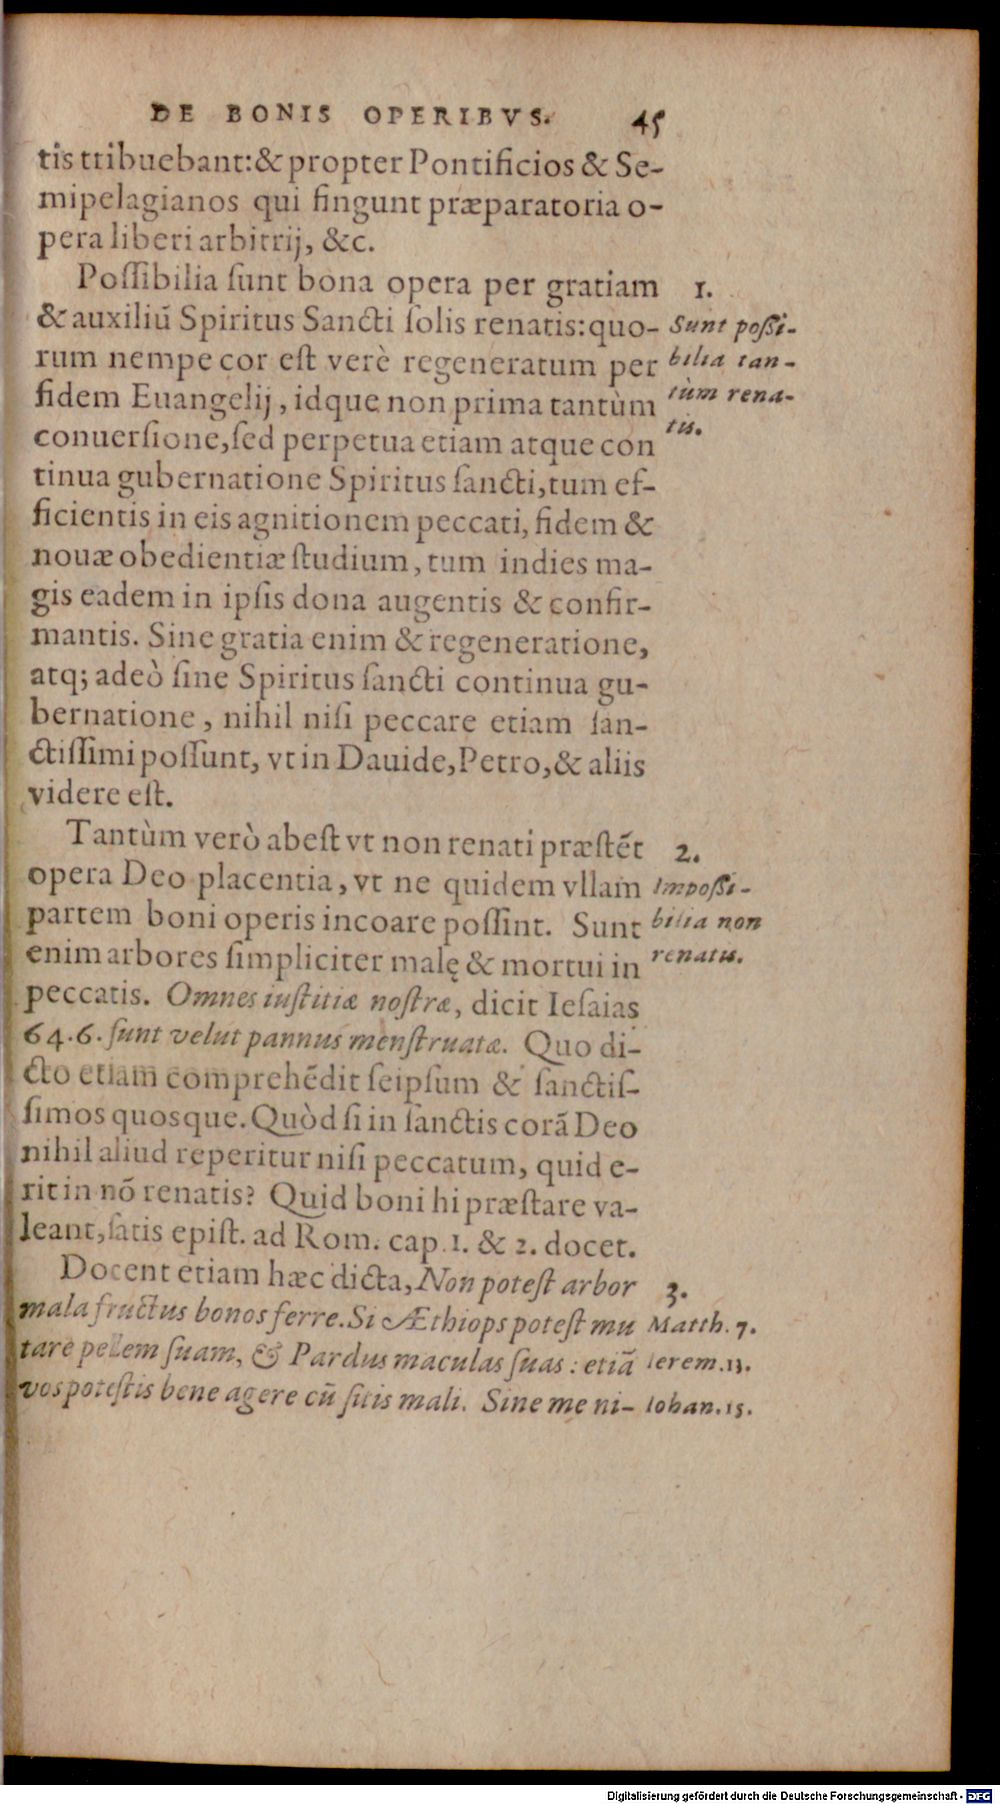 DE BONIS OPERIBVS. 45
tis tribuebant: & propter Pontificios & Se-
mipelagianos qui fingunt præparatoria o-
pera liberi arbitrij, &c.
Possibilia sunt bona opera per gratiam
& auxiliũ Spiritus Sancti solis renatis: quo-
rum nempe cor est verè regeneratum per
fidem Euangelij, idque non prima tantùm
conuersione, sed perpetua etiam atque con
tinua gubernatione Spiritus sancti, tum ef-
ficientis in eis agnitionem peccati, fidem &
nouæ obedientiæ studium, tum indies ma-
gis eadem in ipsis dona augentis & confir-
mantis. Sine gratia enim & regeneratione,
atq; adeò sine Spiritus sancti continua gu-
bernatione, nihil nisi peccare etiam san-
ctissimi possunt, vt in Dauide, Petro, & aliis
videre est.
1.
Sunt possi-
bilia tan-
tùm rena-
tis.
Tantùm verò abest vt non renati præstẽt
opera Deo placentia, vt ne quidem vllam
partem boni operis incoare possint. Sunt
enim arbores simpliciter malę & mortui in
peccatis. Omnes iustitiæ nostræ, dicit Iesaias
64.6. sunt velut pannus menstruatæ. Quo di-
cto etiam comprehẽdit seipsum & sanctis-
simos quosque. Quòd si in sanctis corã Deo
nihil aliud reperitur nisi peccatum, quid e-
rit in nõ renatis? Quid boni hi præstare va-
leant, satis epist. ad Rom. cap. 1. & 2. docet.
2.
Impossi-
bilia non
renatis.
Docent etiam hæc dicta, Non potest arbor
mala fructus bonos ferre. Si Æthiops potest mu
tare pellem suam, & Pardus maculas suas: etiã
vos potestis bene agere cũ sitis mali. Sine me ni-
3.
Matth. 7.
Ierem. 13.
Iohan. 15.
Digitalisierung gefördert durch die Deutsche Forschungsgemeinschaft - DFG